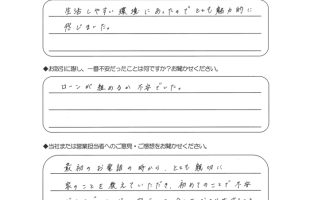 生活しやすい環境にあったのでとても魅力的に
感じました。
◆お取引に際し、一番不安だったことは何ですか？お聞かせください。
ローンが組めるか不安でした。
◆当社または営業担当者へのご意見・ご感想をお聞かせください。
最初のお電話の時から、とても親切に
家のことを教えていただき、初めてのことで不安